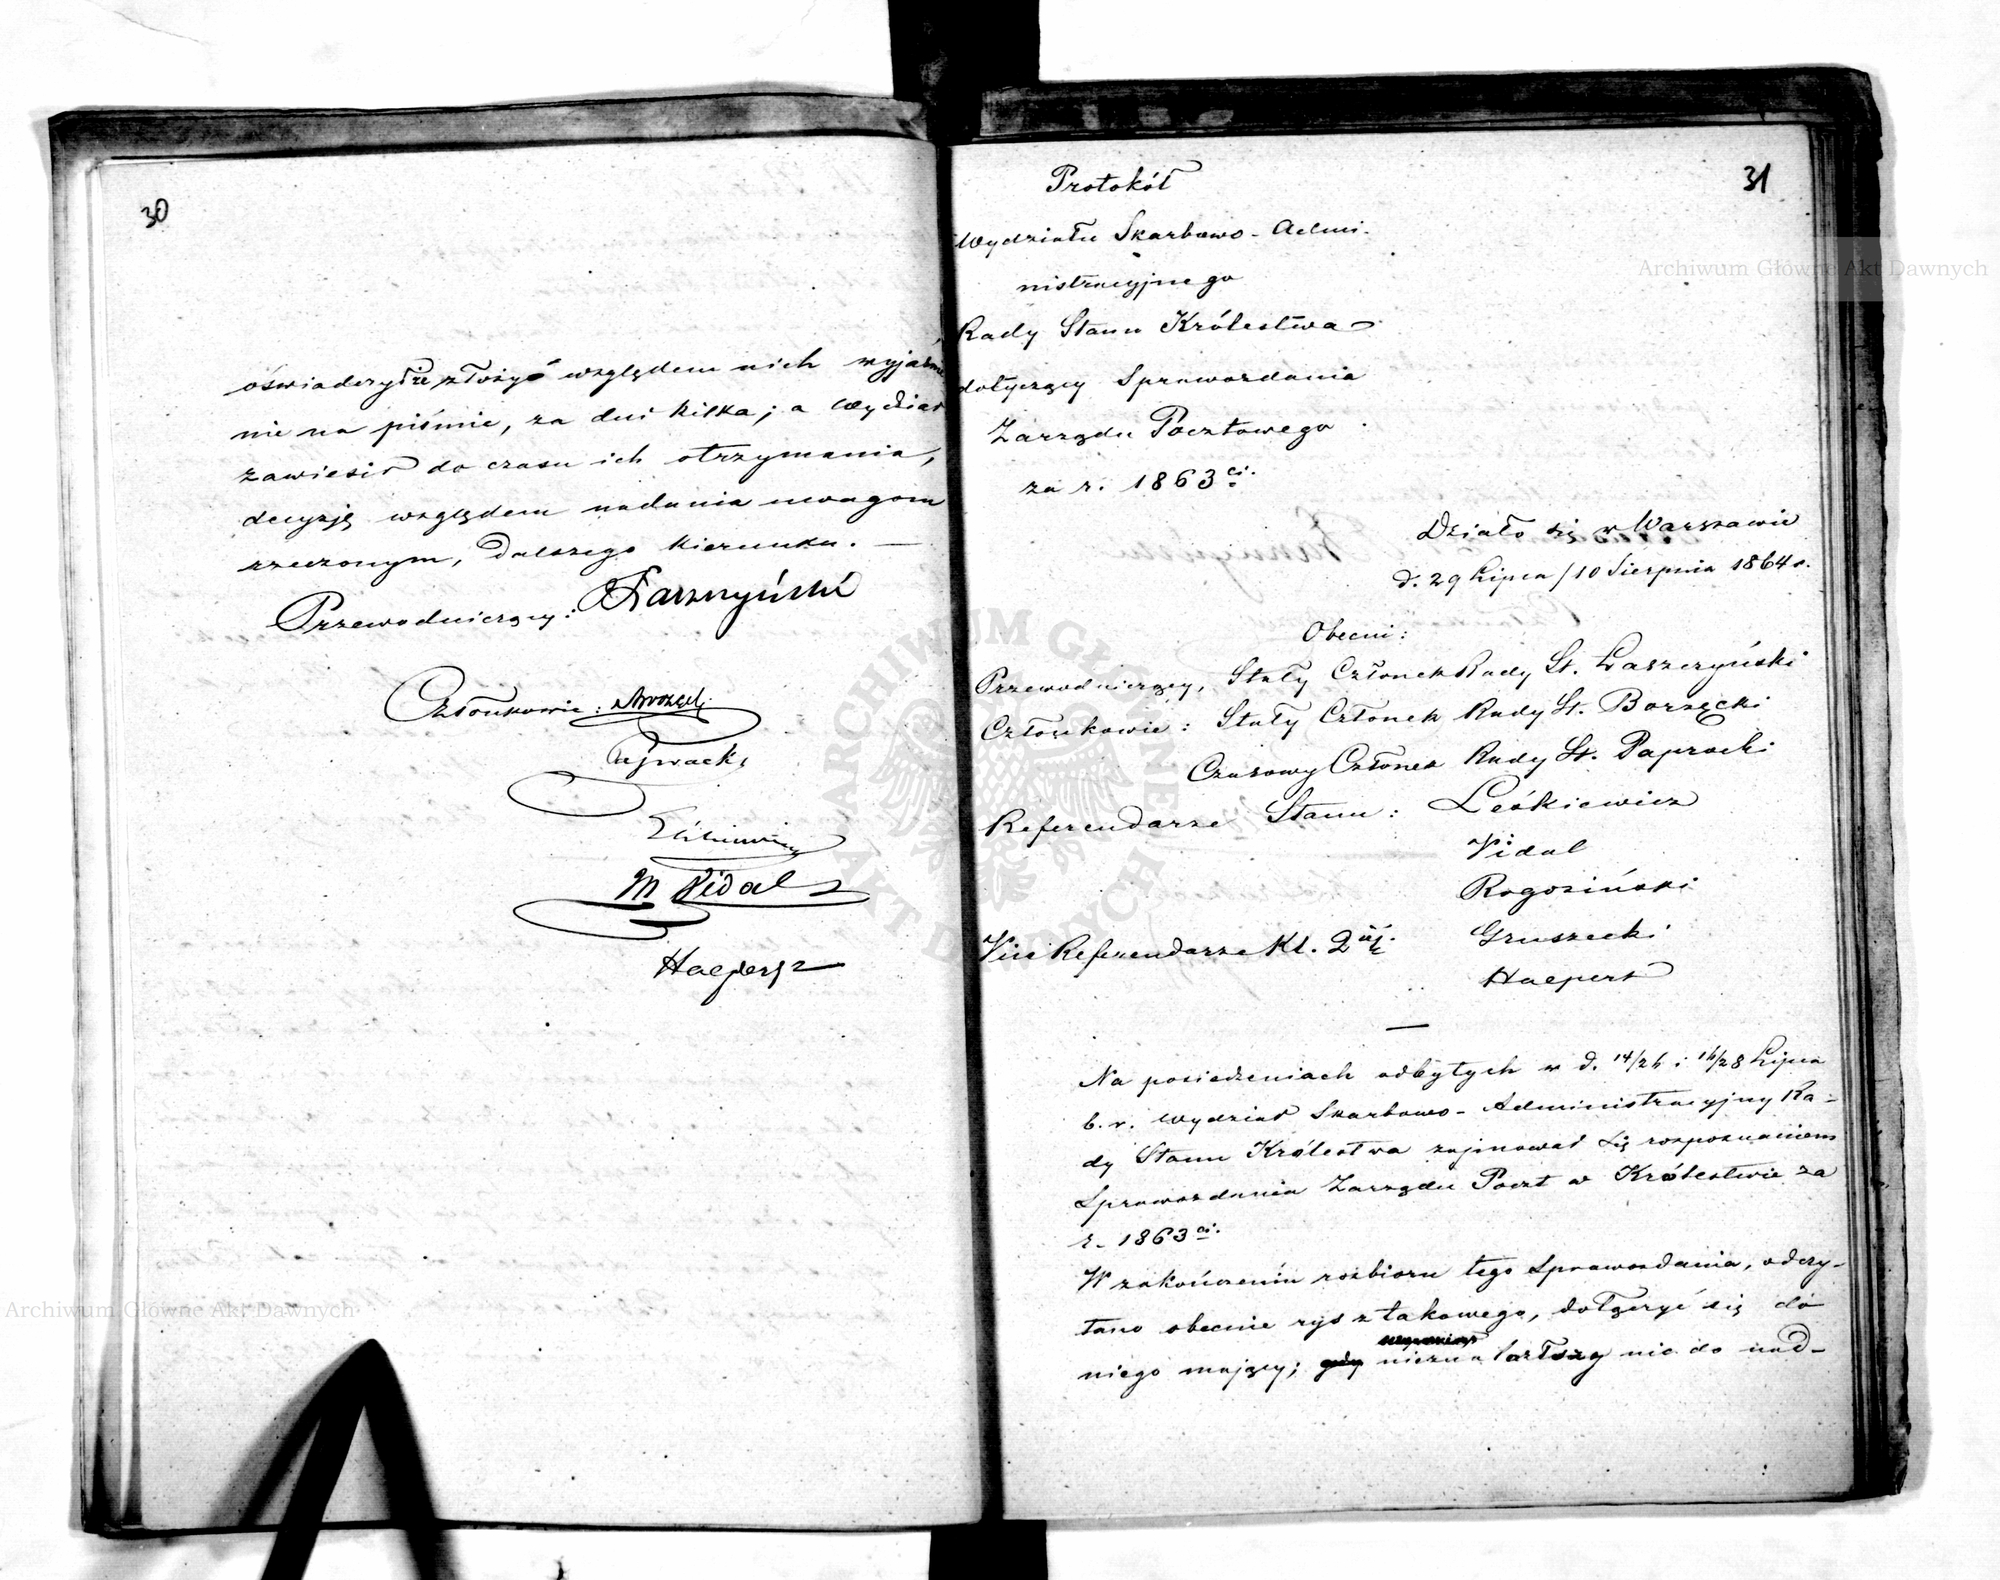 30
oświadczył że złożyć względem nich wyjaśnie
nie na piśmie, za dni kilka; a Wydział
zawiesił do czasu ich otrzymania,
decyzję względem nadania uwagom
rzeczonym, dalszego kierunku. —
Przewodniczący: Łaszczyński
Członkowie:
M Vidal
Halpert
31
Protokół
Wydziału Skarbowo-Admi-
nistracyjnego
Rady Stanu Królestwa
dotyczący Sprawozdania
Zarządu Pocztowego
za r. 1863ci.
Działo się w Warszawie
d. 29 Lipca/10 Sierpnia 1864 r.
Obecni:
Przewodniczący, Stały Członek Rady St. Łaszczyński
Członkowie: Stały Członek Rady St. Borzęcki
Czasowy Członek Rady St. Paprocki
Referendarze Stanu: Leśkiewicz
Vidal
Rogoziński
Vice Referendarze Kl. 2ej. Gruszecki
Halpert
—
Na posiedzeniach odbytych w d. 14/26 i 16/28 Lipca
b. r. Wydział Skarbowo-Administracyjny Ra-
dy Stanu Królestwa zajmował się rozpoznaniem
Sprawozdania Zarządu Poczt w Królestwie za
r. 1863ci.
W zakończeniu rozbioru tego Sprawozdania, odczy-
tano obecnie rys z takowego, dołączyć się do
niego mający; gdy nic do nad-
Archiwum Główne Akt Dawnych
Archiwum Główne Akt Dawnych
ARCHIWUM GŁÓWNE AKT DAWNYCH